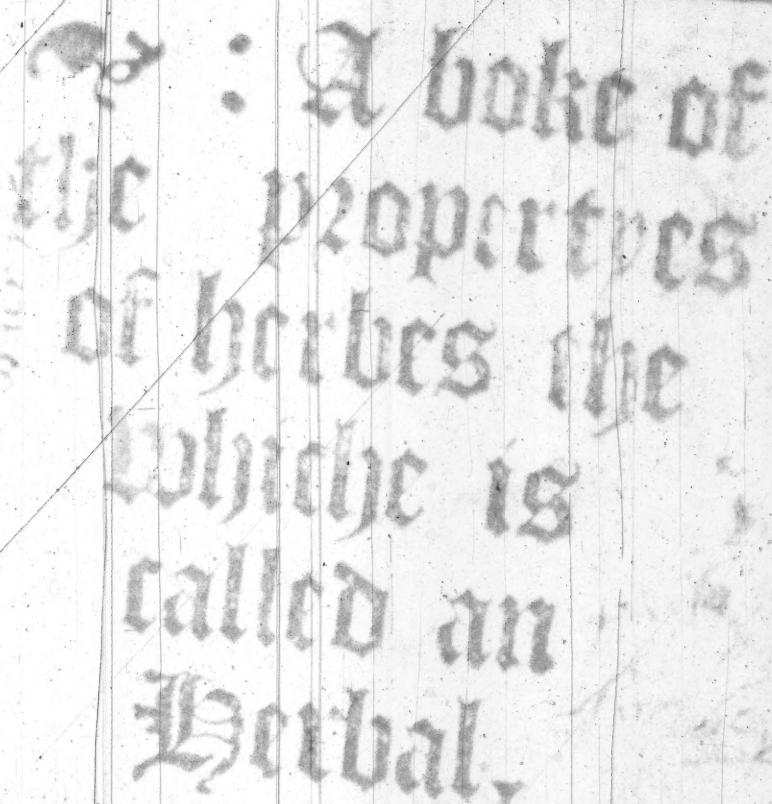 : A boke of
the propertyes
of herbes the
Whiche is
called an
Herbal.